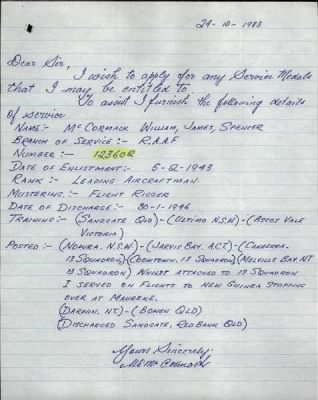 24-10-1983
Dear Sir,
I wish to apply for any Service Medals
that I may be entitled to.
To assist I furnish the following details
of service
NAME:- McCORMACK WILLIAM, JAMES, SPENCER
BRANCH OF SERVICE:- R.A.A.F
NUMBER:- 123602
DATE OF ENLISTMENT:- 5-2-1943
RANK:- LEADING AIRCRAFTMAN
MUSTERING:- FLIGHT RIGGER
DATE OF DISCHARGE:- 30-1-1946
TRAINING:- (SANDGATE QLD)-(ULTIMO N.S.W)-(ASCOT VALE
VICTORIA)
POSTED:- (NOWRA. N.S.W)-(JARVIS BAY. ACT)-(CANBERRA.
13 SQUADRON)(COOKTOWN. 13 SQUADRON)(MELVILLE BAY. NT
13 SQUADRON) WHILST ATTACHED TO 13 SQUADRON
I SERVED ON FLIGHTS TO NEW GUINEA STOPPING
OVER AT
(DARWIN. NT)-(BOWEN QLD)
(DISCHARGED SANDGATE, REDBANK QLD)
Yours Sincerely.
McCormack